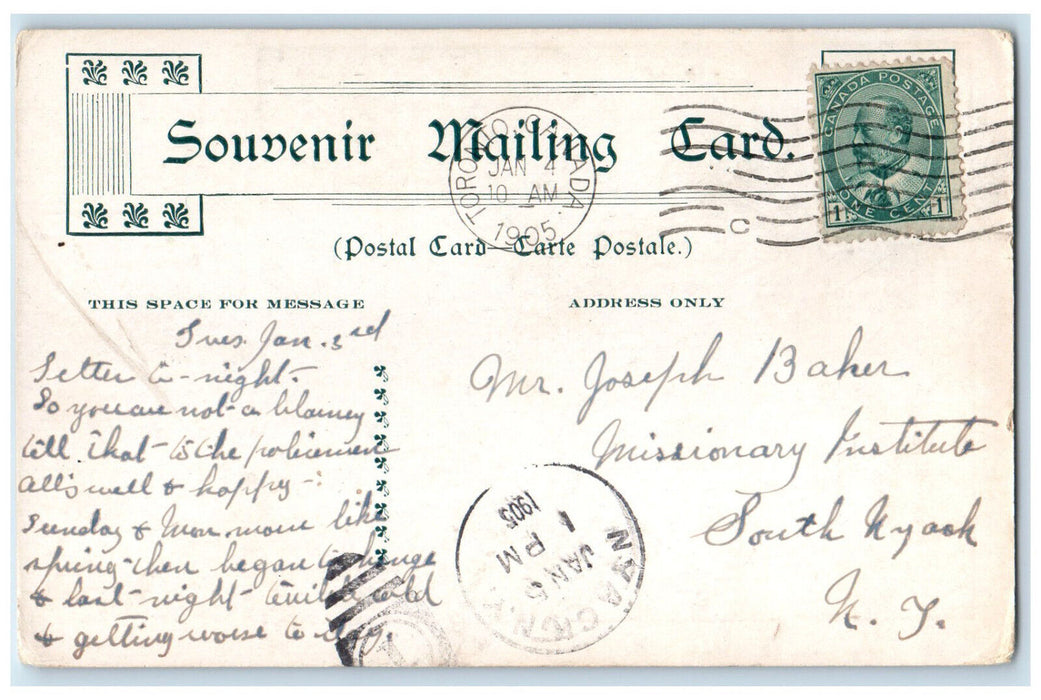 CANADA POSTAGE
1 ONE CENT 1
Souvenir Mailing Card.
TORONTO, CANADA.
JAN 4
10 AM
1905
C
(Postal Card—Carte Postale.)
THIS SPACE FOR MESSAGE
ADDRESS ONLY
Tues. Jan. 3rd
Letter to-night.
So you are not a blarney
tell that to the policeman
All's well & happy
Sunday & Mon. more like
spring then began to change
& last night quite cold
& getting worse to day.
Mr. Joseph Baker
Missionary Institute
South Nyack
N. Y.
NYACK N.Y.
JAN 5
1 PM
1905